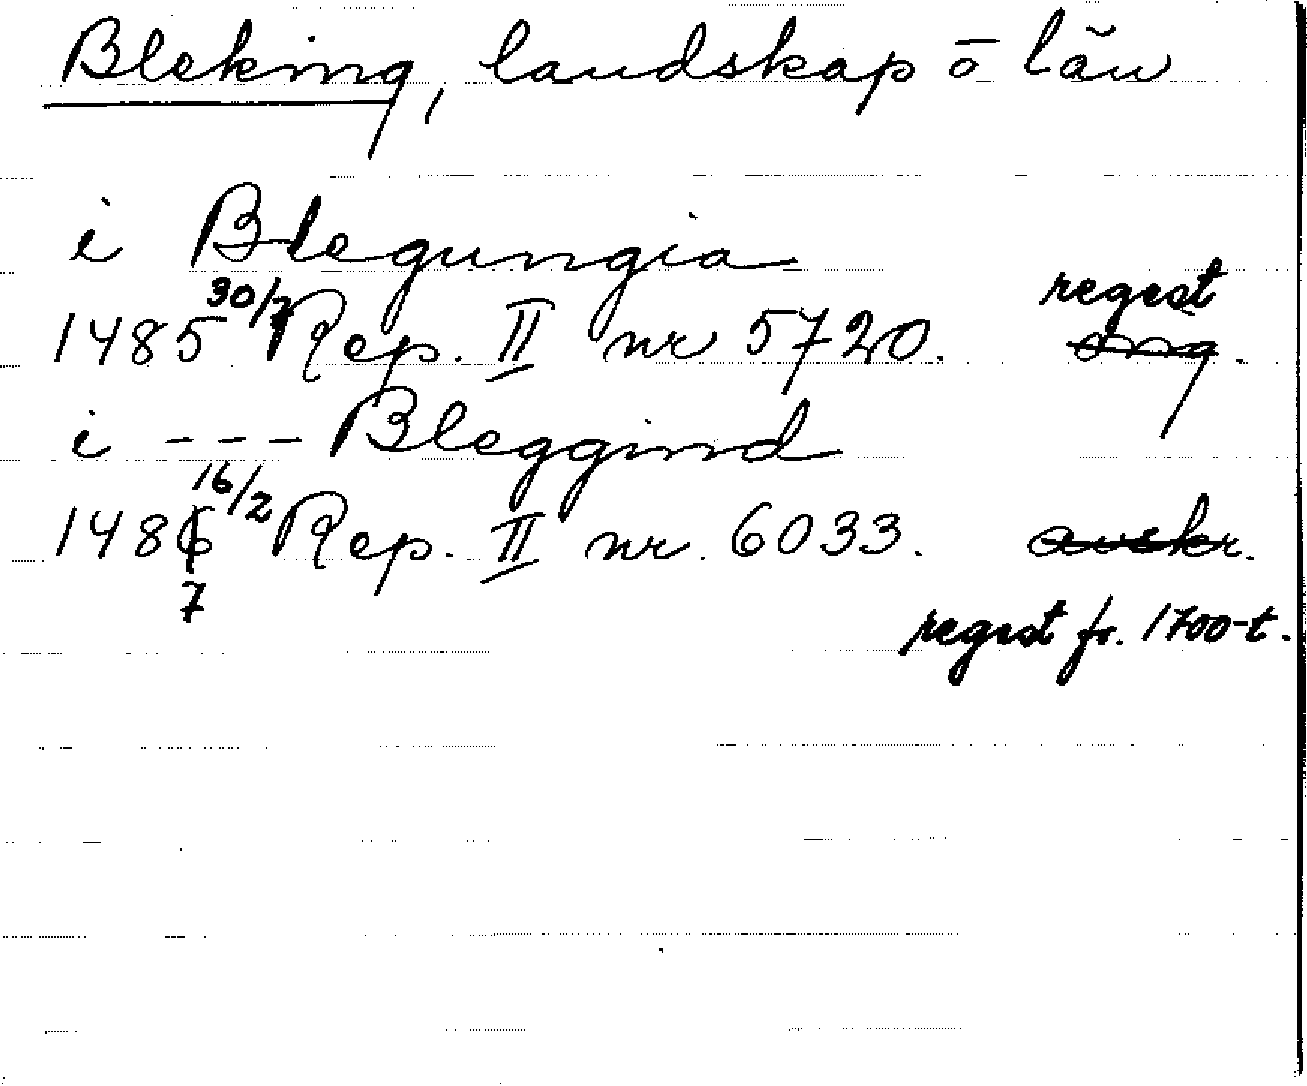 Bleking, landskap o län
i Blegungia
1485 30/7 Rep. II nr 5720. regest
i --- Bleggind
1486 16/2 Rep. II nr. 6033. avskr.
7
regest fr. 1700-t.